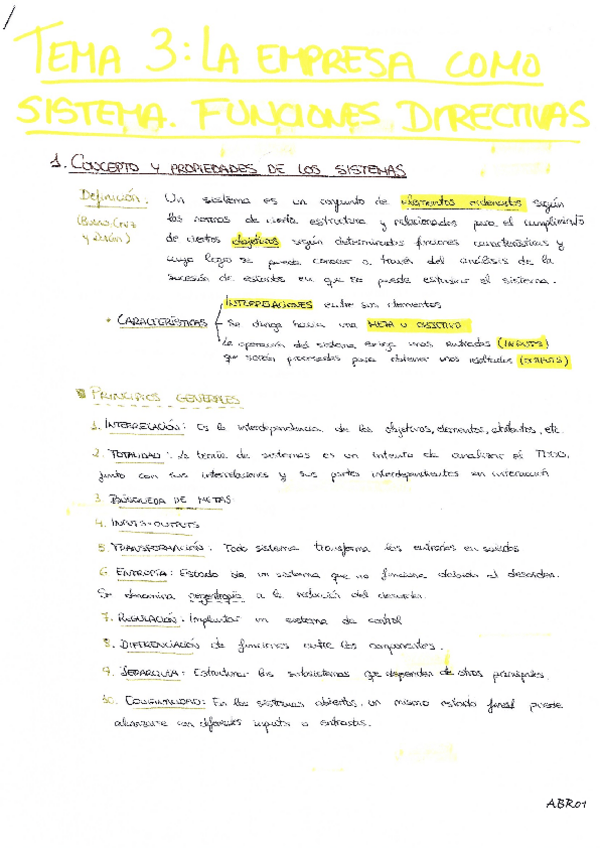 TEMA 3: LA EMPRESA COMO
SISTEMA. FUNCIONES DIRECTIVAS
1. CONCEPTO Y PROPIEDADES DE LOS SISTEMAS
Definición. Un sistema es un conjunto de elementos ordenados según
(Bueno, Cruz las normas de cierta estructura y relacionados para el cumplimiento
y Durán) de ciertos objetivos según determinadas funciones características y
cuyo logro se puede conocer a través del análisis de la
sucesión de estados en que se puede estudiar el sistema.
INTERRELACIONES entre sus elementos
• CARACTERÍSTICAS Se dirige hacia una META U OBJETIVO
La operación del sistema exige unas entradas (INPUTS)
que serán procesadas para obtener unos resultados (OUTPUTS)
PRINCIPIOS GENERALES
1. INTERRELACIÓN: Es la interdependencia de los objetivos, elementos, atributos, etc.
2. TOTALIDAD: La teoría de sistemas es un intento de analizar el TODO,
junto con sus interrelaciones y sus partes interdependientes en interacción
3. BÚSQUEDA DE METAS
4. INPUTS-OUTPUTS
5. TRANSFORMACIÓN: Todo sistema transforma las entradas en salidas
6. ENTROPÍA: Estado de un sistema que no funciona debido al desorden.
Se denomina negentropía a la reducción del desorden.
7. REGULACIÓN. Implantar un sistema de control
8. DIFERENCIACIÓN de funciones entre los componentes.
9. JERARQUÍA: Estructurar los subsistemas que dependen de otros principales.
10. EQUIFINALIDAD: En los sistemas abiertos, un mismo estado final puede
alcanzarse con diferentes inputs o entradas.
ABR01